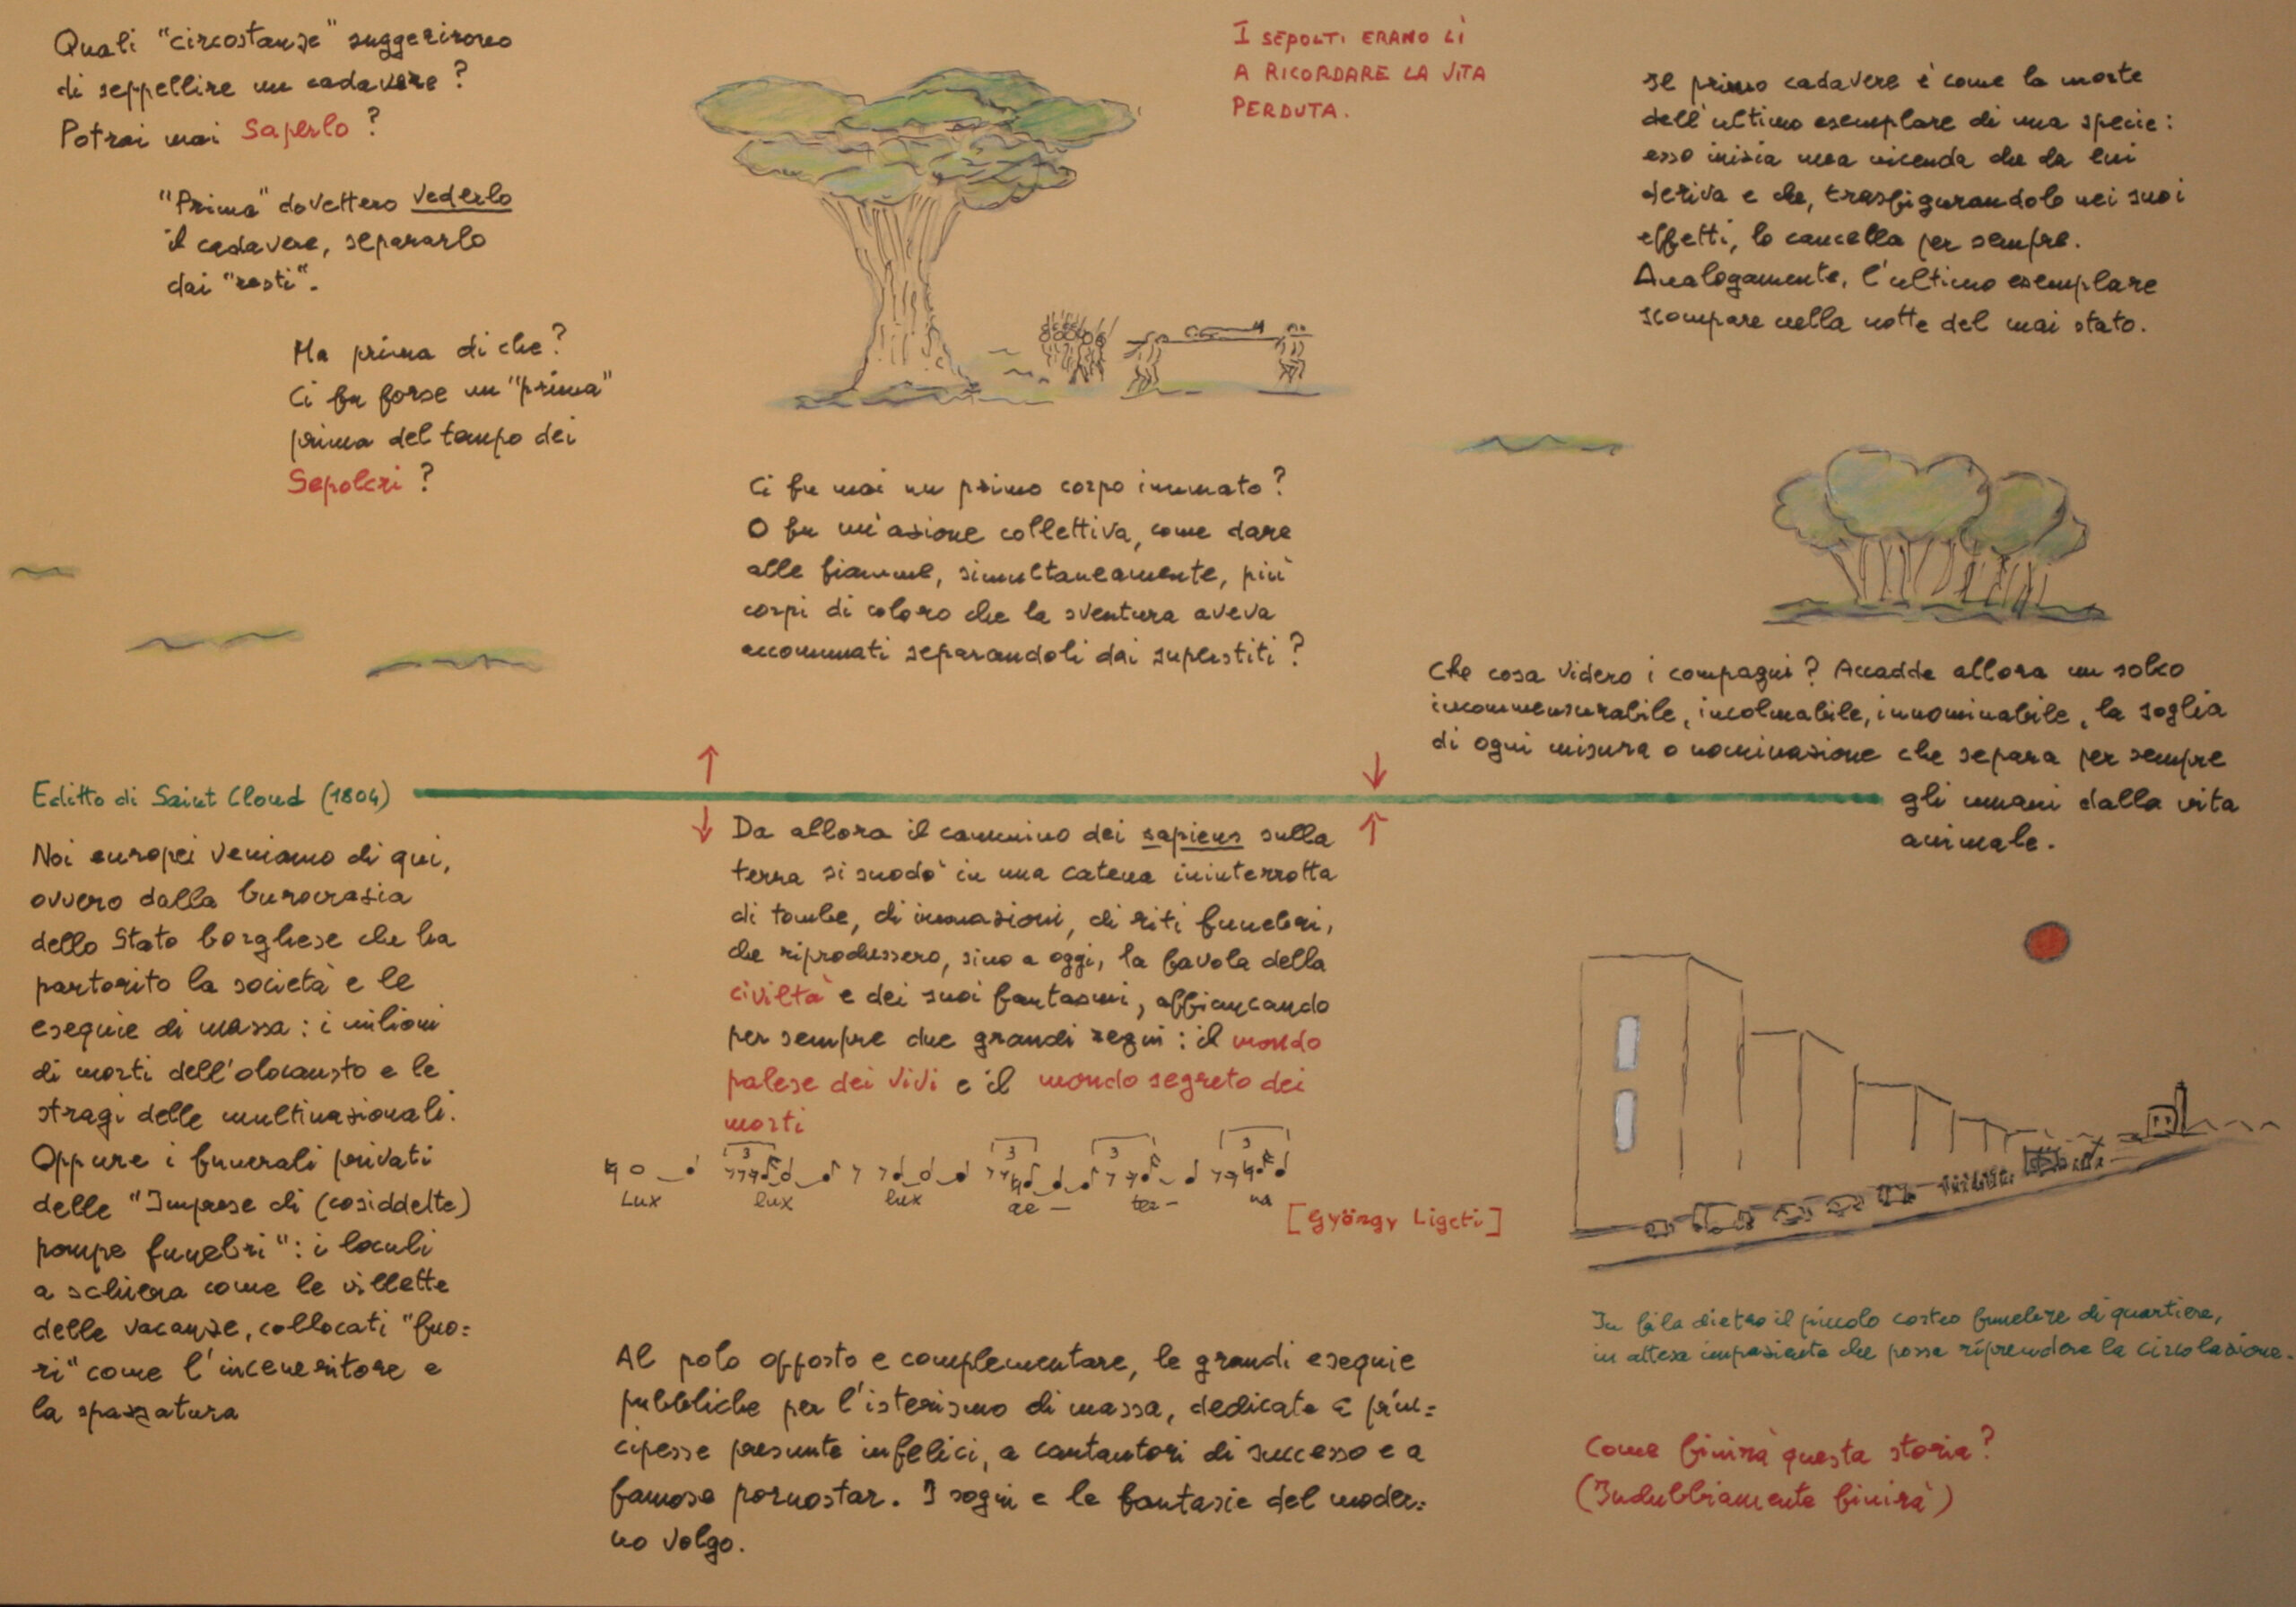 Quali "circostanze" suggerirono
di seppellire un cadavere?
Potrai mai Saperlo?
"Prima" dovettero vederlo
il cadavere, separarlo
dai "resti".
Ma prima di che?
Ci fu forse un "prima"
prima del tempo dei
Sepolcri?
I SEPOLTI ERANO LÌ
A RICORDARE LA VITA
PERDUTA.
Il primo cadavere è come la morte
dell'ultimo esemplare di una specie:
esso inizia una vicenda che da lui
deriva e che, trasfigurandolo nei suoi
effetti, lo cancella per sempre.
Analogamente, l'ultimo esemplare
scompare nella notte del mai stato.
Ci fu mai un primo corpo inumato?
O fu un'azione collettiva, come dare
alle fiamme, simultaneamente, più
corpi di coloro che la sventura aveva
accomunati separandoli dai superstiti?
Che cosa videro i compagni? Accadde allora un solco
incommensurabile, incolmabile, innominabile, la soglia
di ogni misura o nominazione che separa per sempre
gli umani dalla vita
animale.
Editto di Saint Cloud (1804)
Noi europei veniamo di qui,
ovvero dalla burocrazia
dello Stato borghese che ha
partorito la società e le
esequie di massa: i milioni
di morti dell'olocausto e le
stragi delle multinazionali.
Oppure i funerali privati
delle "Imprese di (cosiddette)
pompe funebri": i loculi
a schiera come le villette
delle vacanze, collocati "fuo=
ri" come l'inceneritore e
la spazzatura
Da allora il cammino dei sapiens sulla
terra si snodò in una catena ininterrotta
di tombe, di inumazioni, di riti funebri,
che riprodussero, sino a oggi, la favola della
civiltà e dei suoi fantasmi, affiancando
per sempre due grandi regni: il mondo
palese dei vivi e il mondo segreto dei
morti
3 3 3 3
Lux lux lux ae - ter - na
[György Ligeti]
Al polo opposto e complementare, le grandi esequie
pubbliche per l'isterismo di massa, dedicate a prin=
cipesse presunte infelici, a cantautori di successo e a
famose pornostar. I sogni e le fantasie del moder=
no volgo.
In fila dietro il piccolo corteo funebre di quartiere,
in attesa impaziente che possa riprendere la circolazione.
Come finirà questa storia?
(Indubbiamente finirà)